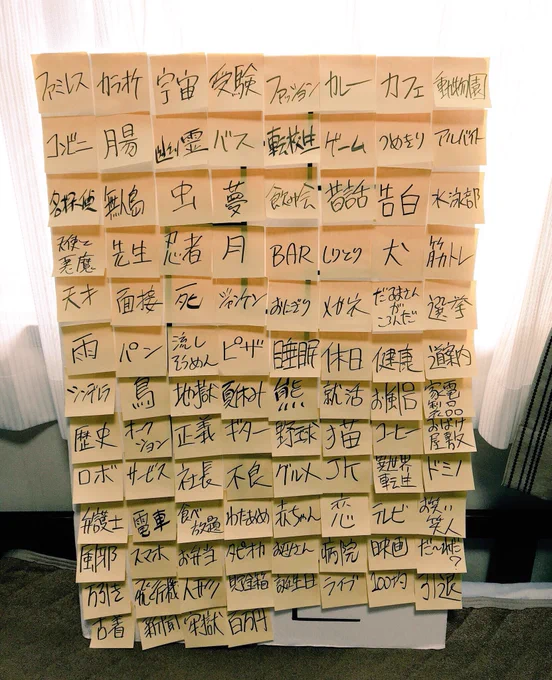 ファミレス カラオケ 宇宙 受験 ファッション カレー カフェ 動物園
コンビニ 腸 幽霊 バス 転校生 ゲーム つめきり アルバイト
名探偵 無人島 虫 夢 飲み会 昔話 告白 水泳部
天使と悪魔 先生 忍者 月 BAR しりとり 犬 筋トレ
天才 面接 死 ジャンケン おにぎり メガネ だるまさんがころんだ 選挙
雨 パン 流しそうめん ピザ 睡眠 休日 健康 道案内
シンデレラ 鳥 地獄 夏休み 熊 就活 お風呂 家電製品
歴史 オークション 正義 ギター 野球 猫 コーヒー おばけ屋敷
ロボ サービス 社長 不良 グルメ JK 異世界転生 ドミノ
弁護士 電車 食べ放題 わたあめ 赤ちゃん 恋 テレビ お笑い芸人
風邪 スマホ お弁当 タピオカ お母さん 病院 映画 だ〜れだ?
万引き 飛行機 人狼 跳び箱 誕生日 ライブ 100均 引退
古着 新聞 牢獄 百万円